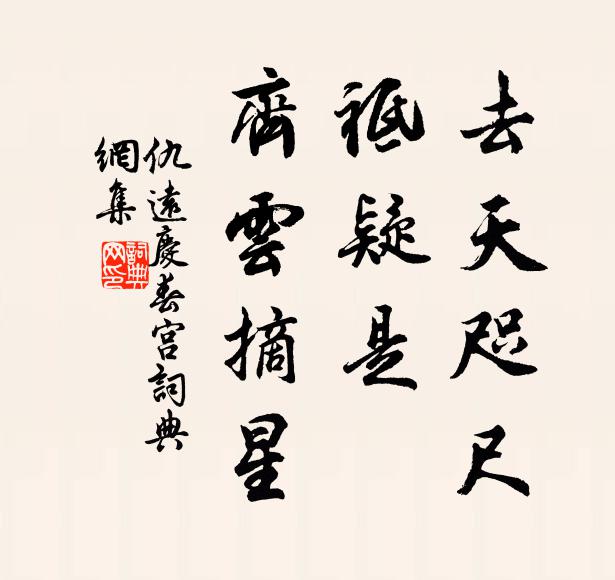 去天咫尺
祗疑是
齊雲摘星
仇遠慶春宮詞典
網集
詞典網印